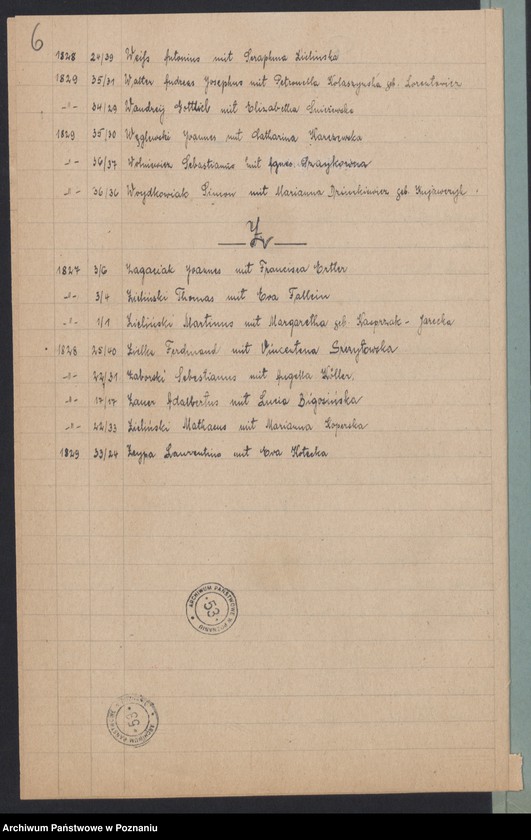 6
1828 24/39 Weiss Antonius mit Seraphina Zielinska
1829 35/31 Walter Andreas Josephus mit Petronella Kolaszynska geb. Lorentowicz
-"- 34/29 Wandrey Gottlieb mit Elizabetha
1829 35/30 Węglewski Joannes mit Catharina Karczewska
-"- 36/37 Wolniewicz Sebastianus mit Agnes
-"- 36/36 Woydkowiak Simon mit Marianna geb.
Z
1827 3/6 Zagaciak Joannes mit Francisca Ertler
-"- 3/4 Zieliński Thomas mit Eva Fallein
-"- 1/1 Zieliński Martinus mit Margaretha geb. Kasprzak - Jarecka
1828 25/40 Zielke Ferdinand mit Vincentena
-"- 22/31 Zaborski Sebastianus mit Angella Köller.
-"- 17/17 Zauer Adalbertus mit Lucia Bigosińska
-"- 22/33 Zieliński Matheus mit Marianna Koperska
1829 33/24 Zeypa Laurentius mit Eva Kotecka
ARCHIWUM PAŃSTWOWE W POZNANIU
53
ARCHIWUM PAŃSTWOWE
53
Archiwum Państwowe w Poznaniu